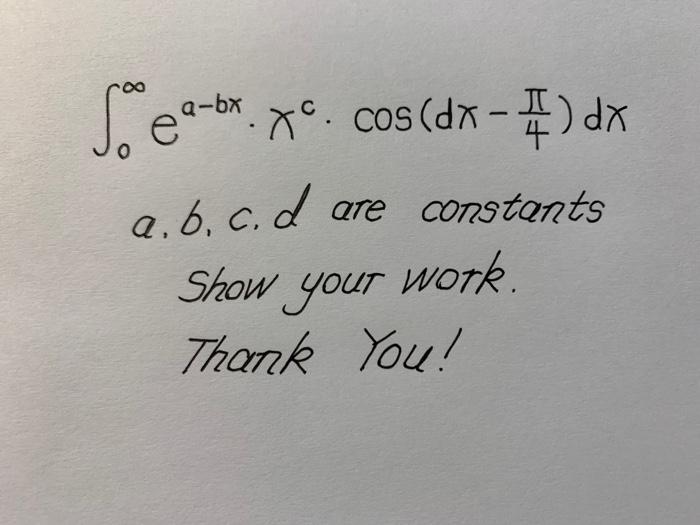 ∫₀^∞ e^(a-bx) · x^c · cos(dx - π/4) dx
a, b, c, d are constants
Show your work.
Thank You!